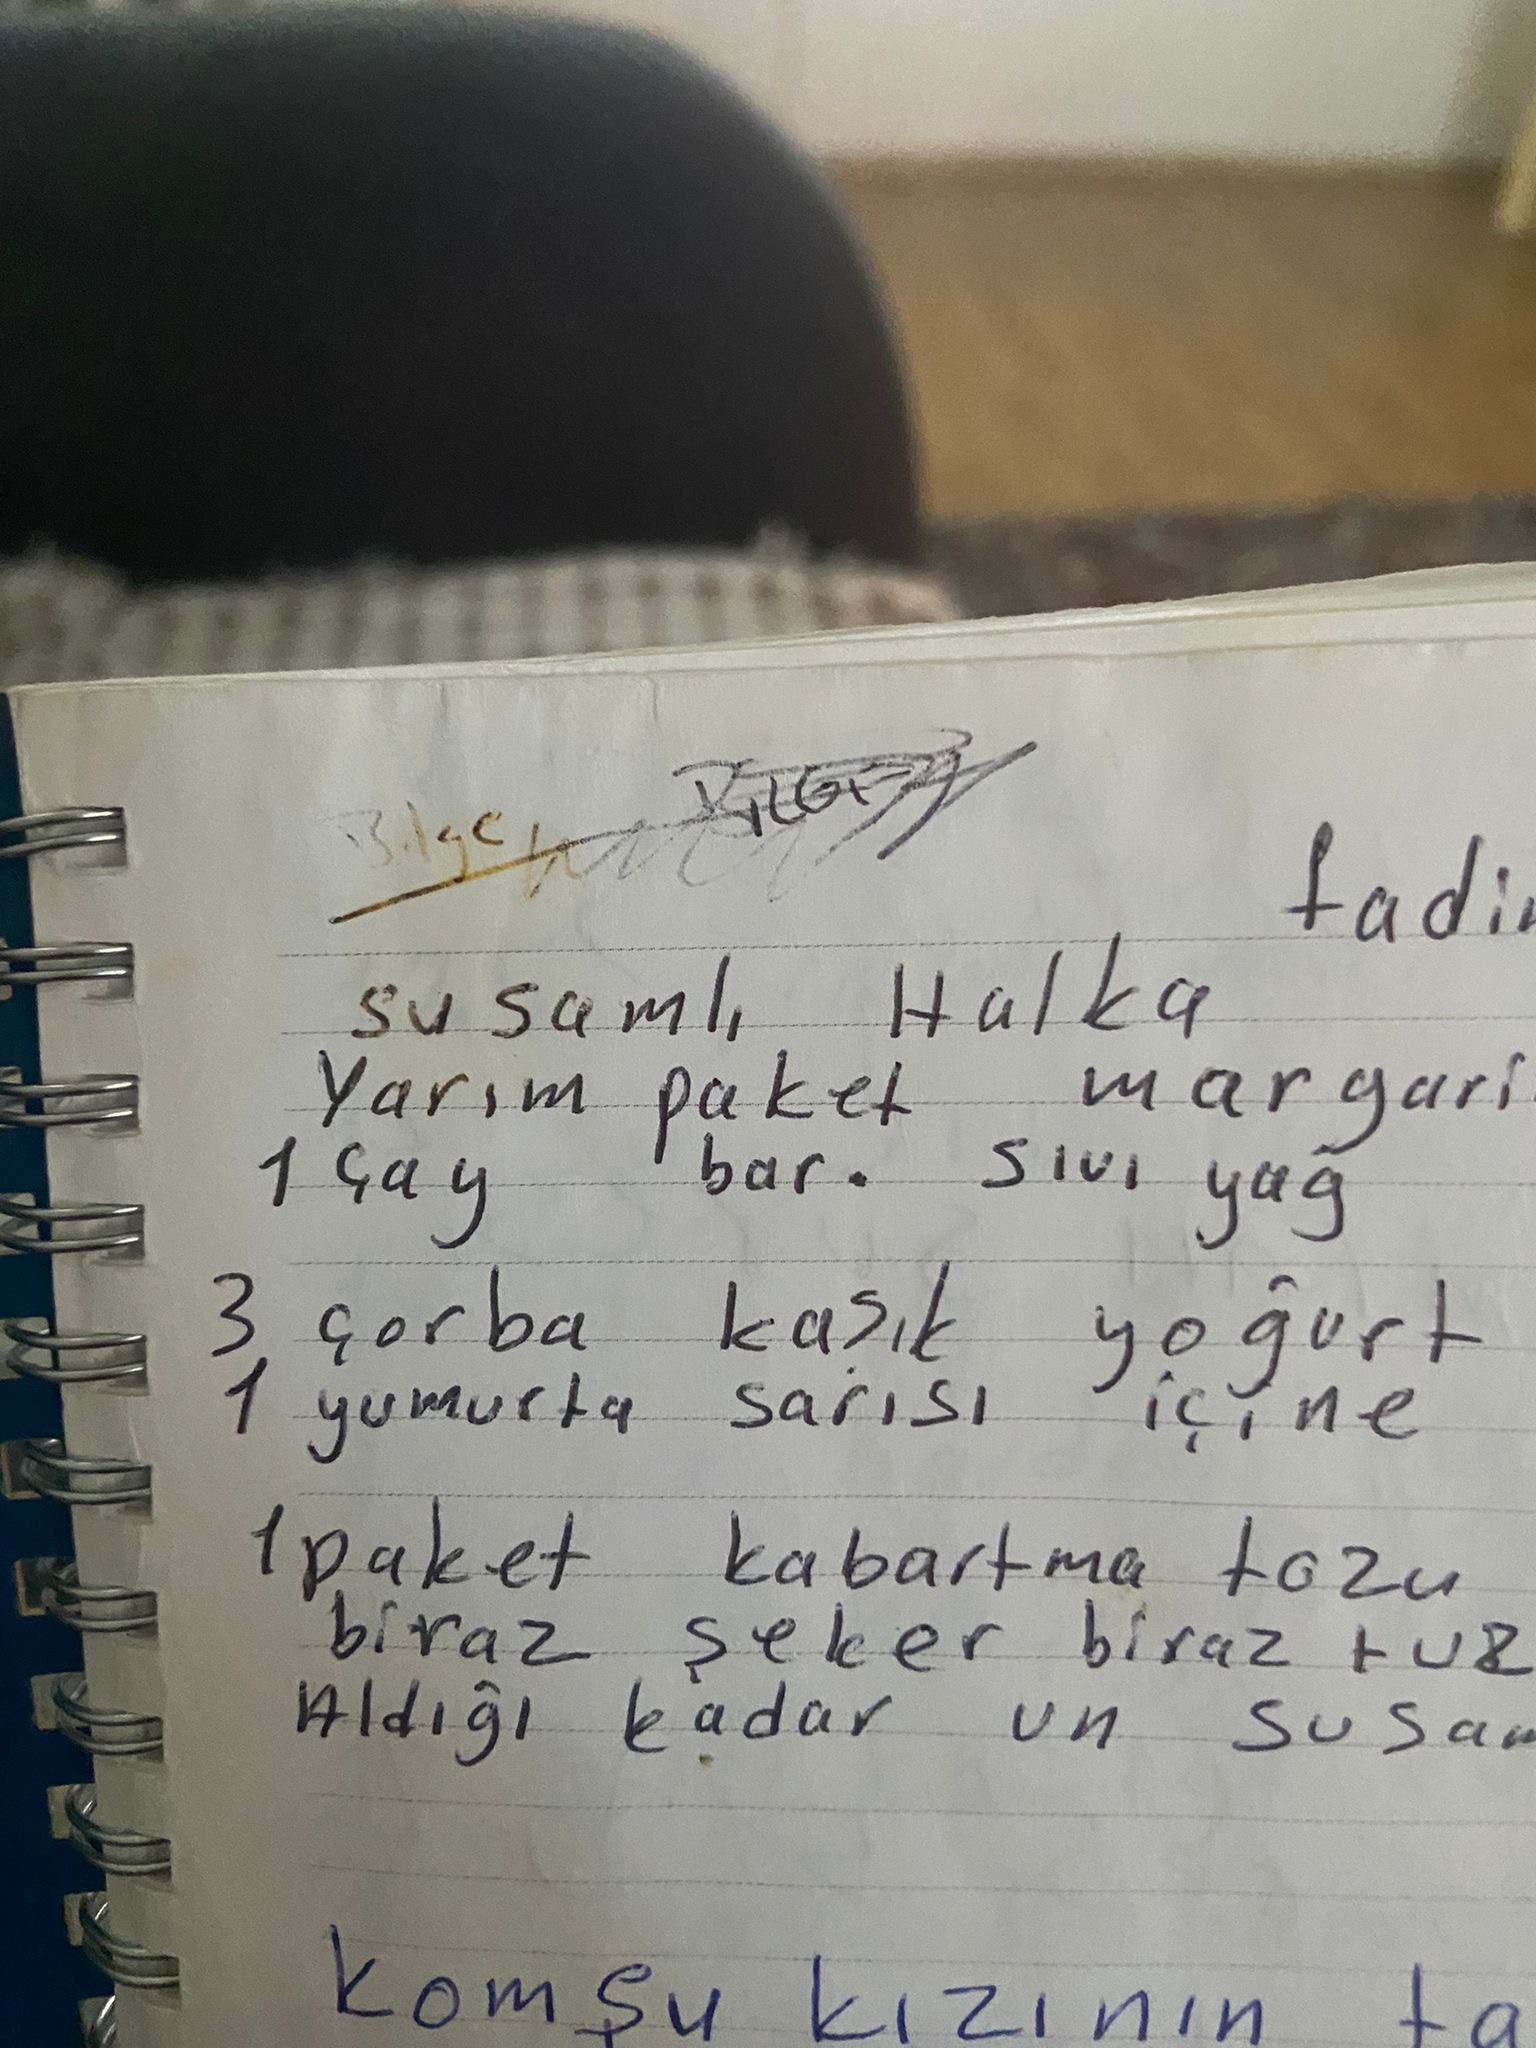 Bilge BİLGE
fadi
susamlı Halka
Yarım paket margari
1 çay bar. sıvı yağ
3 çorba kaşık yoğurt
1 yumurta sarısı içine
1 paket kabartma tozu
biraz şeker biraz tuz
Aldığı kadar un susam
komşu kızının ta